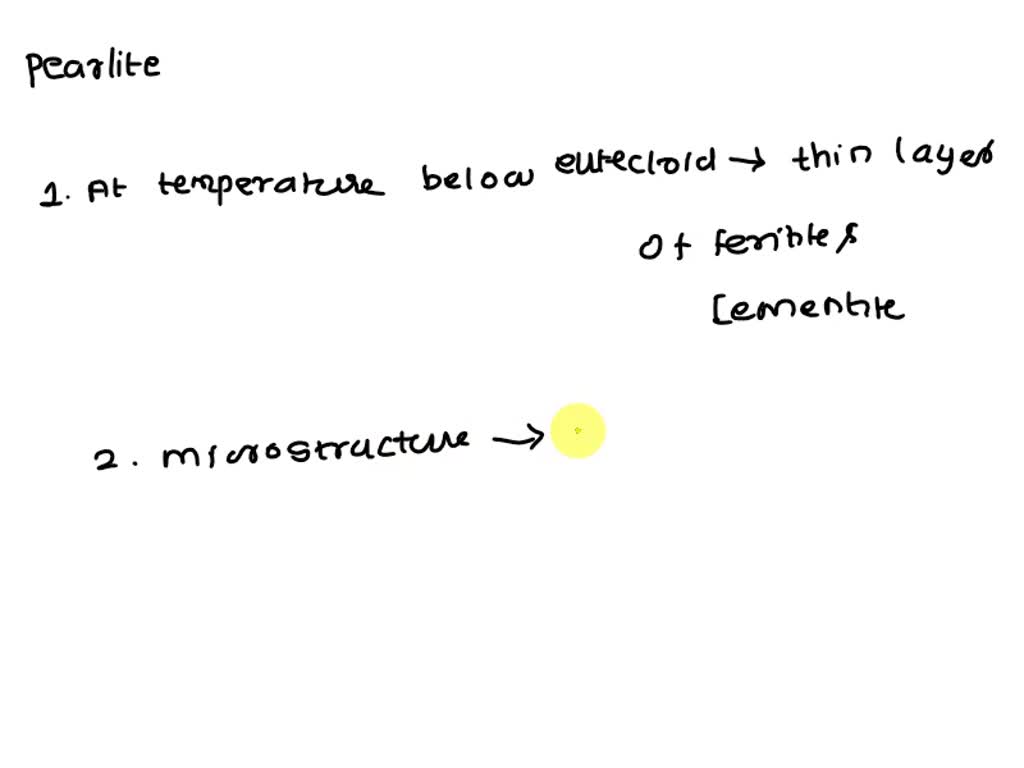 Pearlite
1. At temperature below eutectoid → thin layer
of ferrite &
Cementite
2. microstructure →